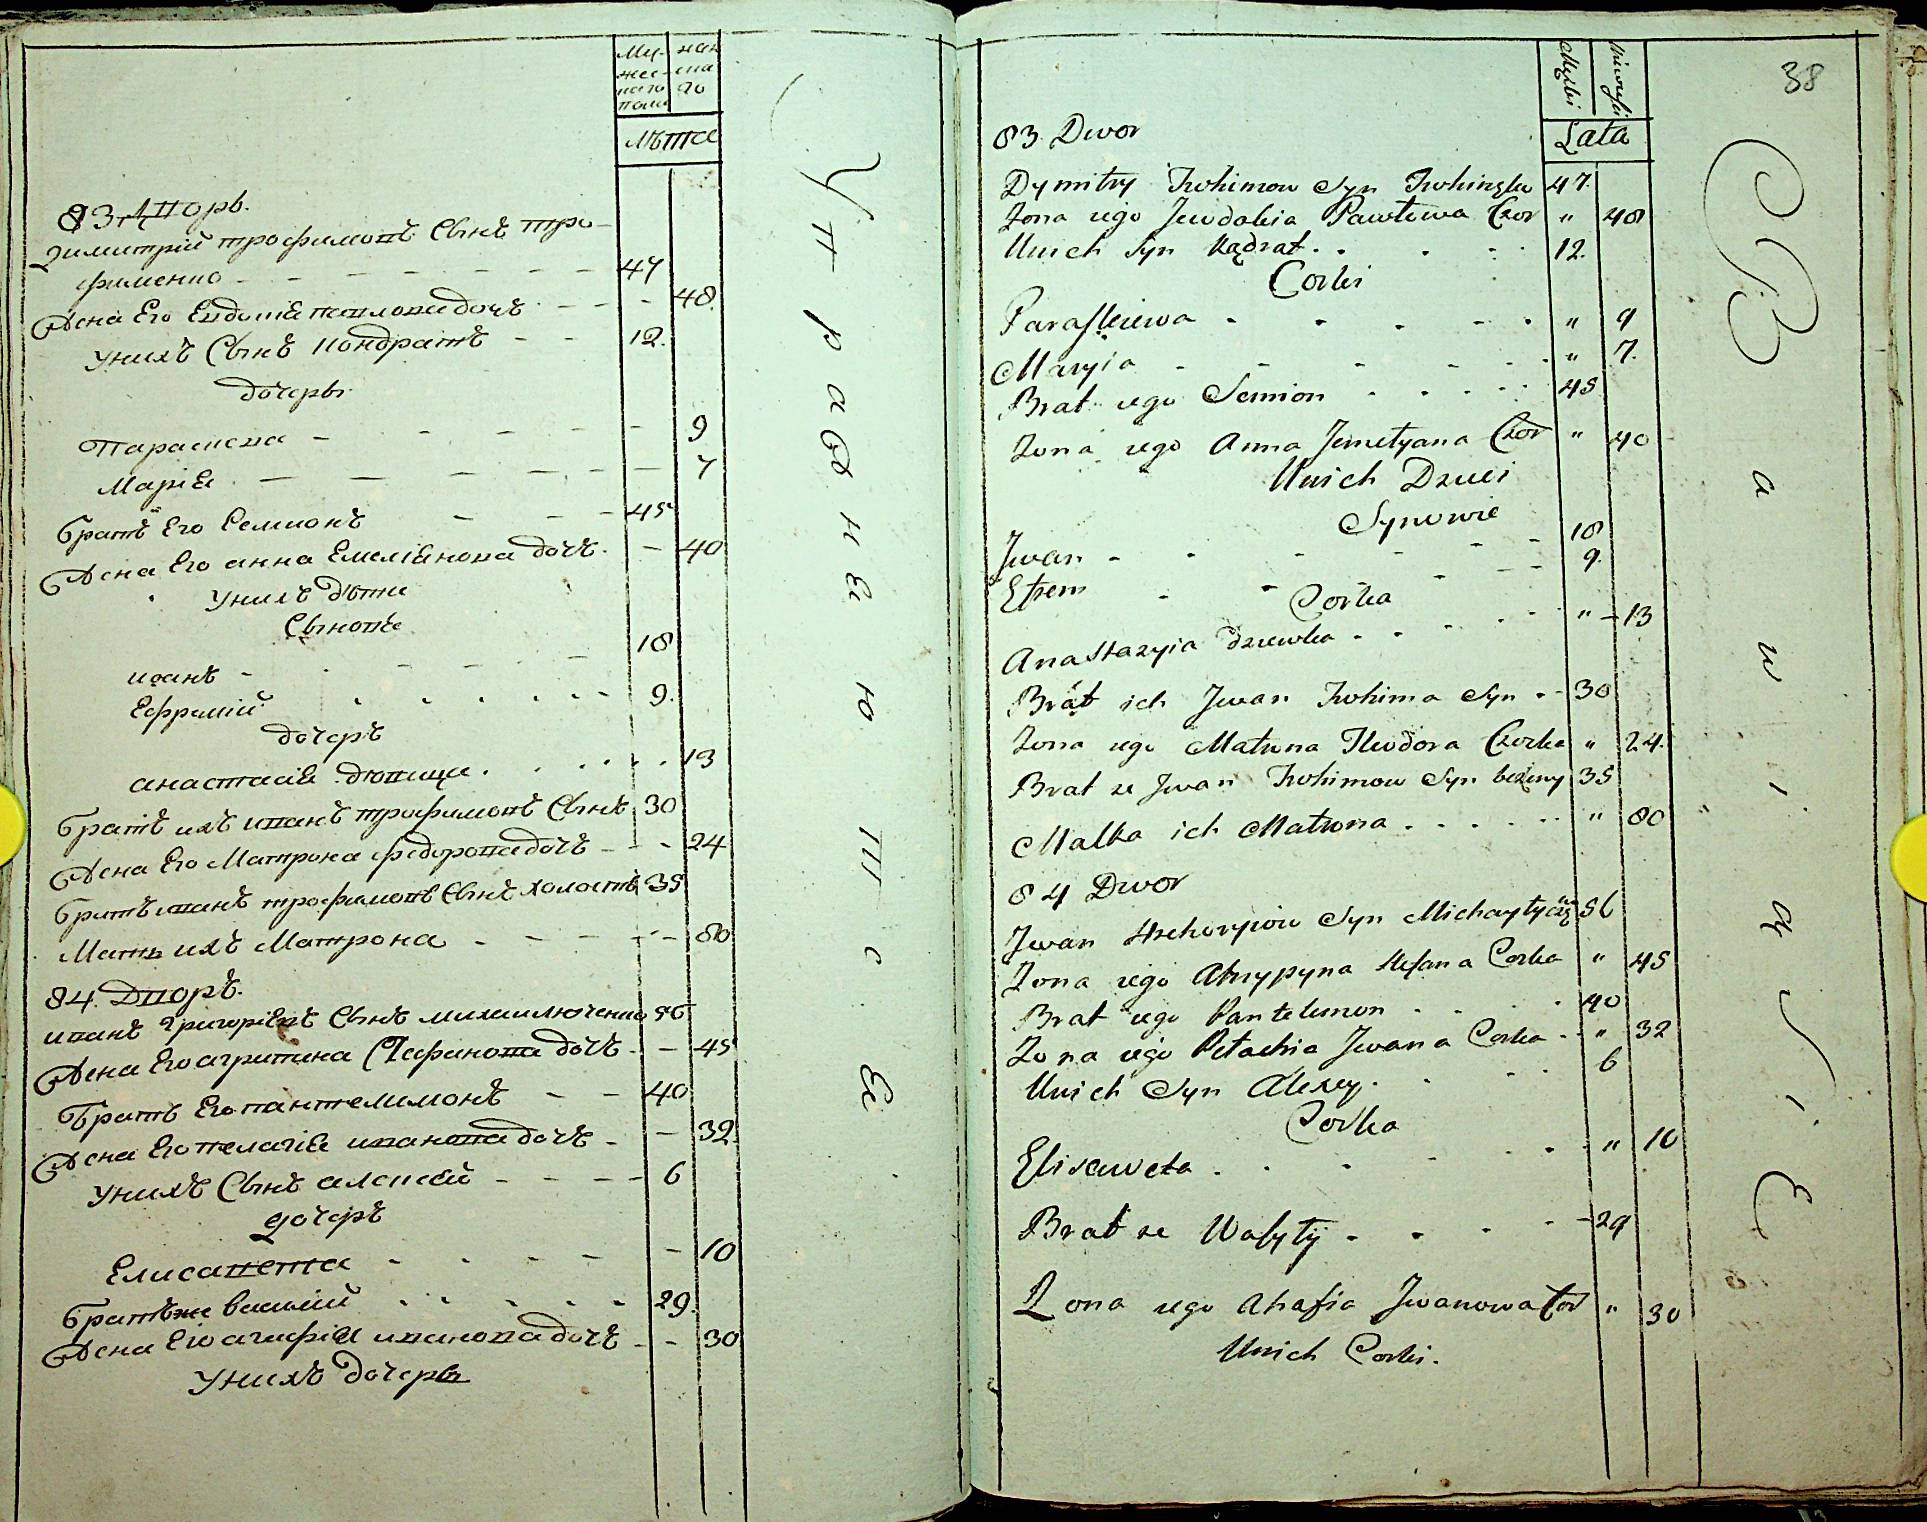 Му- жен
жес- ска
каго го
пола
лѣта
83 Дворъ.
Димитрій трофимовъ Сынъ тро-
фименко - - - - - - - 47
Жена Его Евдокіѧ павлова дочъ - - - 48
Унихъ Сынъ кондратъ - - 12.
дочеры
Параскева - - - - - 9
Маріѧ - - - - - 7
Братъ Его Семионъ - - - 45
Жена Его анна Емеліѧнова дочъ. - 40
Унихъ дѣти
Сыновѣ
иванъ - - - - - 18
Ефремій - - - - - 9.
дочеръ
анастасіѧ дѣвица . . . . . . 13
Братъ ихъ иванъ трофимовъ Сынъ 30
Жена Его Матрона федорова дочъ - - - 24
Братъ иванъ трофимовъ Сынъ холостъ 35
Мать ихъ Матрона - - - - - - 80
84. Дворъ.
иванъ григоріевъ Сынъ михаилюченко 56
Жена Его агрипина Стефанова дочъ - - 45
Братъ Его пантелимонъ - - 40
Жена Его пелагіѧ иванова дочъ - - 32.
Унихъ Сынъ алексѣй - - - - 6
дочеръ
Елисавета - - - - - 10
Братъже василій . . . . . 29.
Жена Его агафіѧ иванова дочъ - - 30
Унихъ дочеры
У п р а в н ѧ ю ш с ѧ
38
Lata
83 Dwor
Dymitry Trohimow Syn Trohimęko 47.
Zona iego Jewdokia Pawłowa Czor " 48
Unich Syn Kądrat . . . . 12.
Corki
Paraskiewa - - - - - " 9
Maryia - - - - - " 7.
Brat iego Semion . . . . . 45
Zona iego Anna Jemelyana Czor " 40
Unich Dzieci
Synowie
Jwan - - - - - - 18
Efrem - - - - - 9.
Corka
Anastazyia dziewka . . . . . " - 13
Brat ich Jwan Trohima Syn - - 30
Zona iego Matrona Theodora Czorka " 24.
Brat ze Jwan Trohimow Syn beżeny 35
Matka ich Matrona . . . . . . " 80
84 Dwor
Jwan Hrehoryiow Syn Michayłyczę 56
Zona iego Ahrypyna Stefana Corka " 45
Brat iego Pantelimon . . . 40
Zona iego Pelachia Jwana Corka - " 32
Unich Syn Alexey . . . . 6
Corka
Elisaweta . . . . . . " 10
Brat ze Wasyly . . . . - 29
Zona iego Ahafia Jwanowa Cor " 30
Unich Corki.